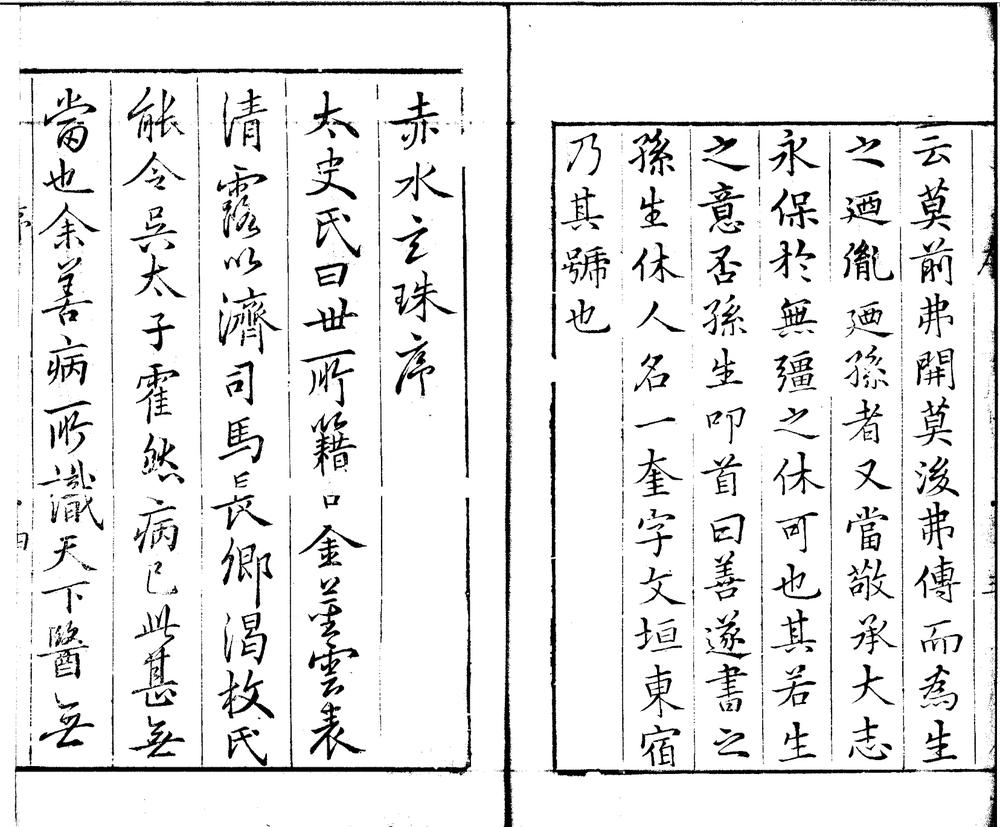 云莫前弗開莫後弗傳而為生
之迺胤迺孫者又當敬承大志
永保於無彊之休可也其若生
之意否孫生叩首曰善遂書之
孫生休人名一奎字文垣東宿
乃其號也
赤水玄珠序
太史氏曰世所籍口金莖雲表
清露以濟司馬長卿渴枚氏
能令吳太子霍然病已此甚無
當也余善病所識天下醫無